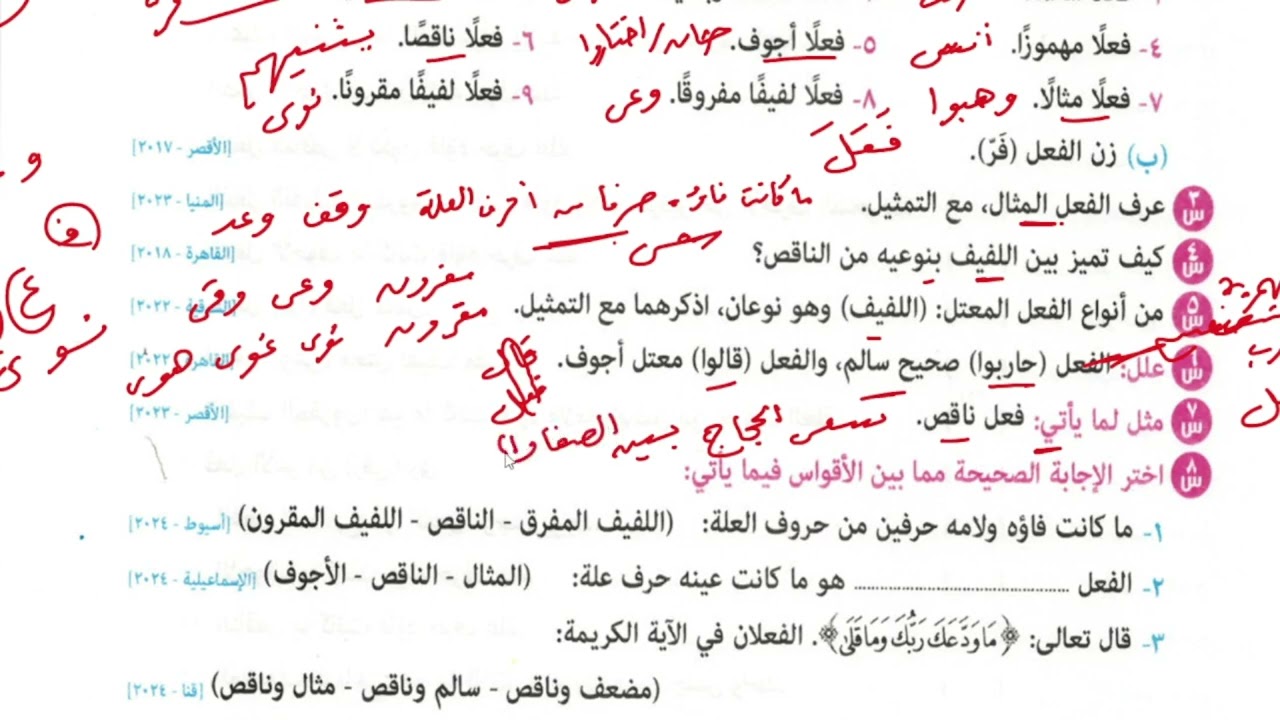 ٤- فعلًا مهموزًا. ٥- فعلًا أجوف. ٦- فعلًا ناقصًا.
٧- فعلًا مثالًا. وهبوا ٨- فعلًا لفيفًا مفروقًا. وعى ٩- فعلًا لفيفًا مقرونًا. نوى
(ب) زن الفعل (فَرّ). فَعَلَ [الأقصر - ٢٠١٧]
س٣ عرف الفعل المثال، مع التمثيل. ما كانت فاؤه حرفا من أحرف العلة وقف وعد [المنيا - ٢٠٢٣]
س٤ كيف تميز بين اللفيف بنوعيه من الناقص؟ سعى [القاهرة - ٢٠١٨]
س٥ من أنواع الفعل المعتل: (اللفيف) وهو نوعان، اذكرهما مع التمثيل. مفروق وعى وقى
مقرون نوى غوى هوى
س٦ علل: الفعل (حاربوا) صحيح سالم، والفعل (قالوا) معتل أجوف. قال [القاهرة - ٢٠٢٢]
س٧ مثل لما يأتي: فعل ناقص. سعى الحجاج بين الصفا وا [الأقصر - ٢٠٢٣]
س٨ اختر الإجابة الصحيحة مما بين الأقواس فيما يأتي:
١- ما كانت فاؤه ولامه حرفين من حروف العلة: (اللفيف المفرق - الناقص - اللفيف المقرون) [أسيوط - ٢٠٢٤]
٢- الفعل .................... هو ما كانت عينه حرف علة: (المثال - الناقص - الأجوف) [الإسماعيلية - ٢٠٢٤]
٣- قال تعالى: ﴿مَا وَدَّعَكَ رَبُّكَ وَمَا قَلَىٰ﴾. الفعلان في الآية الكريمة:
(مضعف وناقص - سالم وناقص - مثال وناقص) [قنا - ٢٠٢٤]